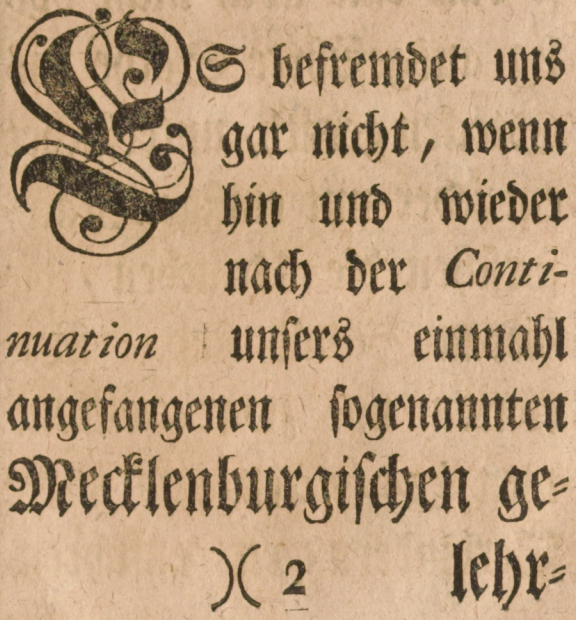 ES befremdet uns
gar nicht, wenn
hin und wieder
nach der Conti-
nuation unsers einmahl
angefangenen sogenannten
Mecklenburgischen ge-
)( 2 lehr-